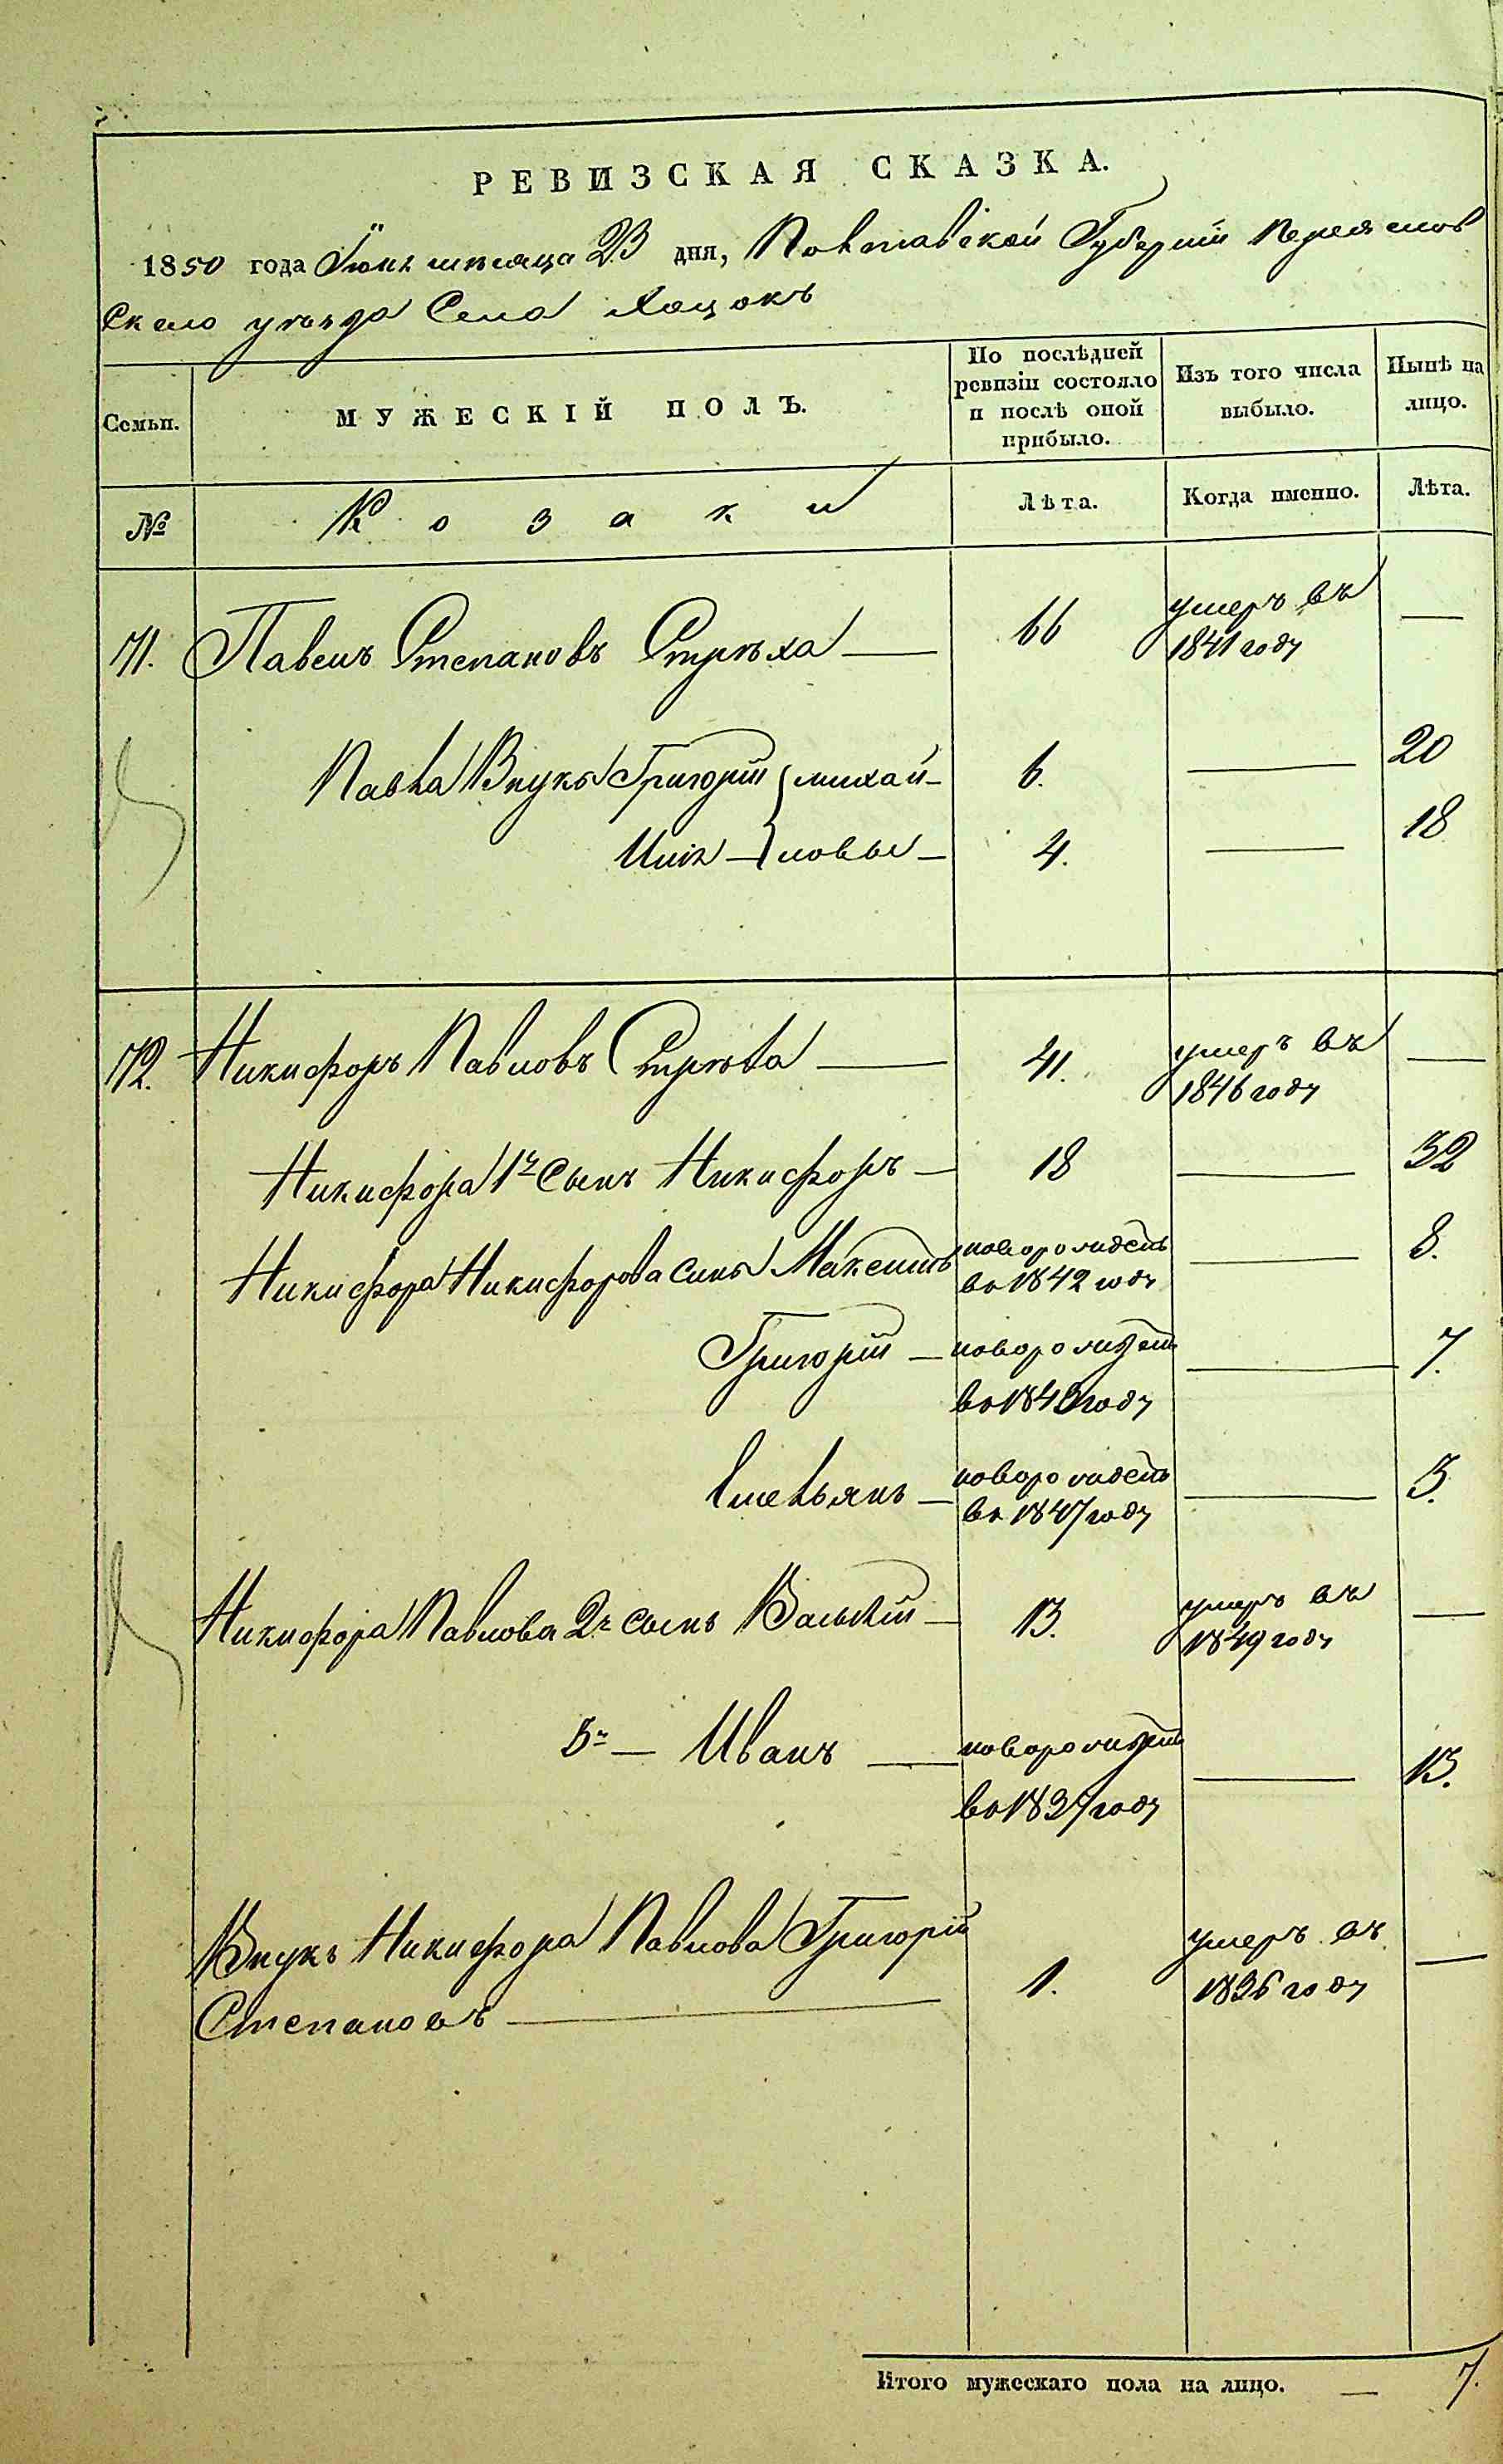 РЕВИЗСКАЯ СКАЗКА.
1850 года Іюнь мѣсяца 23 дня, Полтавской Губерніи Переяслов
скаго уѣзда Села Хоцокъ
Семьи.
МУЖЕСКІЙ ПОЛЪ.
По послѣдней
ревизіи состояло
и послѣ оной
прибыло.
Изъ того числа
выбыло.
Нынѣ на
лицо.
№
Козаки
Лѣта.
Когда именно.
Лѣта.
71. Павелъ Степановъ Стрѣха — 66 умеръ въ 1841 году —
Павла Внуки Григорій } михай- 6. — 20
Илія — } ловы — 4. — 18
72. Никифоръ Павловъ — 41. умеръ въ 1846 году —
Никифора 1й Сынъ Никифоръ — 18 — 32
Никифора Никифорова сыны Максимъ новорожденъ — 8.
во 1842 году
Григорій — новорожден — 7.
во 1843 году
Емельянъ — новорожденъ — 3.
во 1847 году
Никифора Павлова 2й сынъ Василій — 13. умеръ въ 1849 году —
3й — Иванъ — новорожден — 13.
во 1837 году
Внукъ Никифора Павлова Григорій
Степановъ — 1. умеръ въ 1836 году —
Итого мужескаго пола на лицо. — 7.